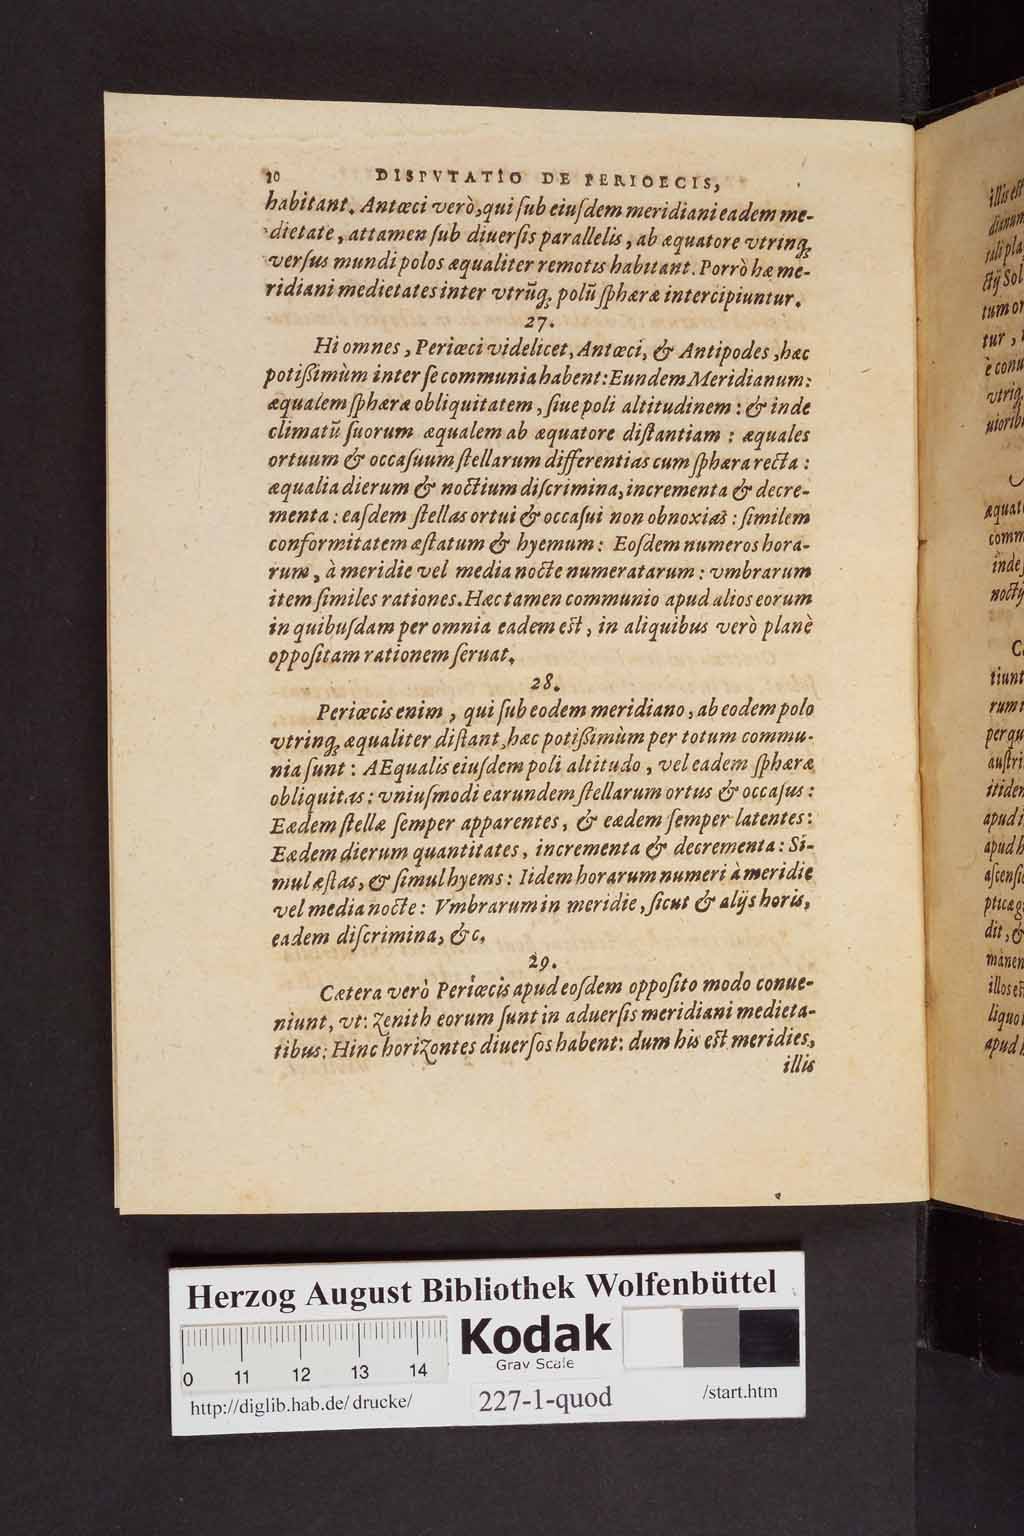 20 DISPVTATIO DE PERIOECIS,
habitant. Antœci verò, qui ſub eiuſdem meridiani eadem me-
dietate, attamen ſub diuerſis parallelis, ab æquatore vtrinq;
verſus mundi polos æqualiter remotis habitant. Porrò hæ me-
ridiani medietates inter vtrũq; polũ ſphæræ intercipiuntur.
27.
Hi omnes, Periœci videlicet, Antœci, & Antipodes, hæc
potißimùm inter ſe communia habent: Eundem Meridianum:
æqualem ſphæræ obliquitatem, ſiue poli altitudinem: & inde
climatũ ſuorum æqualem ab æquatore diſtantiam: æquales
ortuum & occaſuum ſtellarum differentias cum ſphæra recta:
æqualia dierum & noctium diſcrimina, incrementa & decre-
menta: eaſdem ſtellas ortui & occaſui non obnoxias: ſimilem
conformitatem æſtatum & hyemum: Eoſdem numeros hora-
rum, à meridie vel media nocte numeratarum: vmbrarum
item ſimiles rationes. Hæc tamen communio apud alios eorum
in quibuſdam per omnia eadem eſt, in aliquibus verò planè
oppoſitam rationem ſeruat.
28.
Periœcis enim, qui ſub eodem meridiano, ab eodem polo
vtrinq; æqualiter diſtant, hæc potißimùm per totum commu-
nia ſunt: AEqualis eiuſdem poli altitudo, vel eadem ſphæræ
obliquitas: vniuſmodi earundem ſtellarum ortus & occaſus:
Eædem ſtellæ ſemper apparentes, & eædem ſemper latentes:
Eædem dierum quantitates, incrementa & decrementa: Si-
mul æſtas, & ſimul hyems: Iidem horarum numeri à meridie
vel media nocte: Vmbrarum in meridie, ſicut & alijs horis,
eadem diſcrimina, &c.
29.
Cætera verò Periœcis apud eoſdem oppoſito modo conue-
niunt, vt: Zenith eorum ſunt in aduerſis meridiani medieta-
tibus: Hinc horiZontes diuerſos habent: dum his eſt meridies,
illis
illis eſt
dianum
ctij Sol
tum or
tur,
è conu
vtriq
uiorib
æquat
comm
inde
noctij
tiunt
rum
per qu
auſtri
itidem
apud i
apud h
aſcenſi
pticæ g
dit, &
manen
illos eſ
liquo
apud h
Herzog August Bibliothek Wolfenbüttel
Kodak
Gray Scale
0 11 12 13 14
http://diglib.hab.de/drucke/ 227-1-quod /start.htm